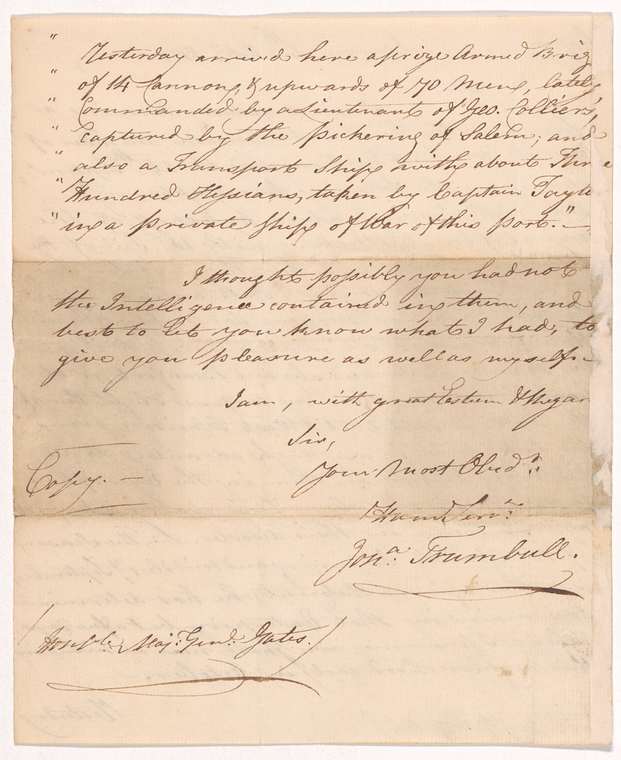 " Yesterday arrived here a prize Armed Brig
" of 14 Cannon, & upwards of 70 Men, lately
" Commanded by a Lieutenant of Geo. Colliers,
" Captured by the pickering of Salem; and
" also a Transport Ship with about Thre e
" Hundred Hessians, taken by Captain Taylo
" in a private Ship of War of this port." —
I thought possibly you had not
the Intelligence contained in them, and
best to let you know what I had, to
give you pleasure as well as myself. —
I am, with great Esteem & Regar
Sir,
Your Most Obedt.
Humb Servt.
Copy. —
Jona. Trumbull.
Honble. Maj. Genl. Gates.